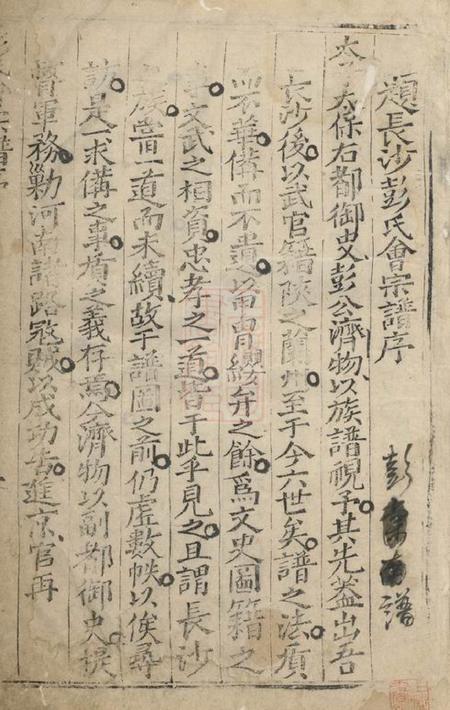 題長沙彭氏會宗譜序
太子太保右都御史彭公濟物以族譜視予其先蓋出吾
長沙後以武官籍陝之蘭州至于今六世矣譜之法須
詳華備而不遺以甲冑纓弁之餘爲文史圖籍之
事文武之相資忠孝之一道皆于此乎見之且謂長沙
之族嘗一道而未續故于譜圖之前仍虛數帙以俟尋
訪是一求備之事之義存焉公濟物以副都御史提
督軍務勦河南諸路寇賊以成功告進京官再
彭 南譜